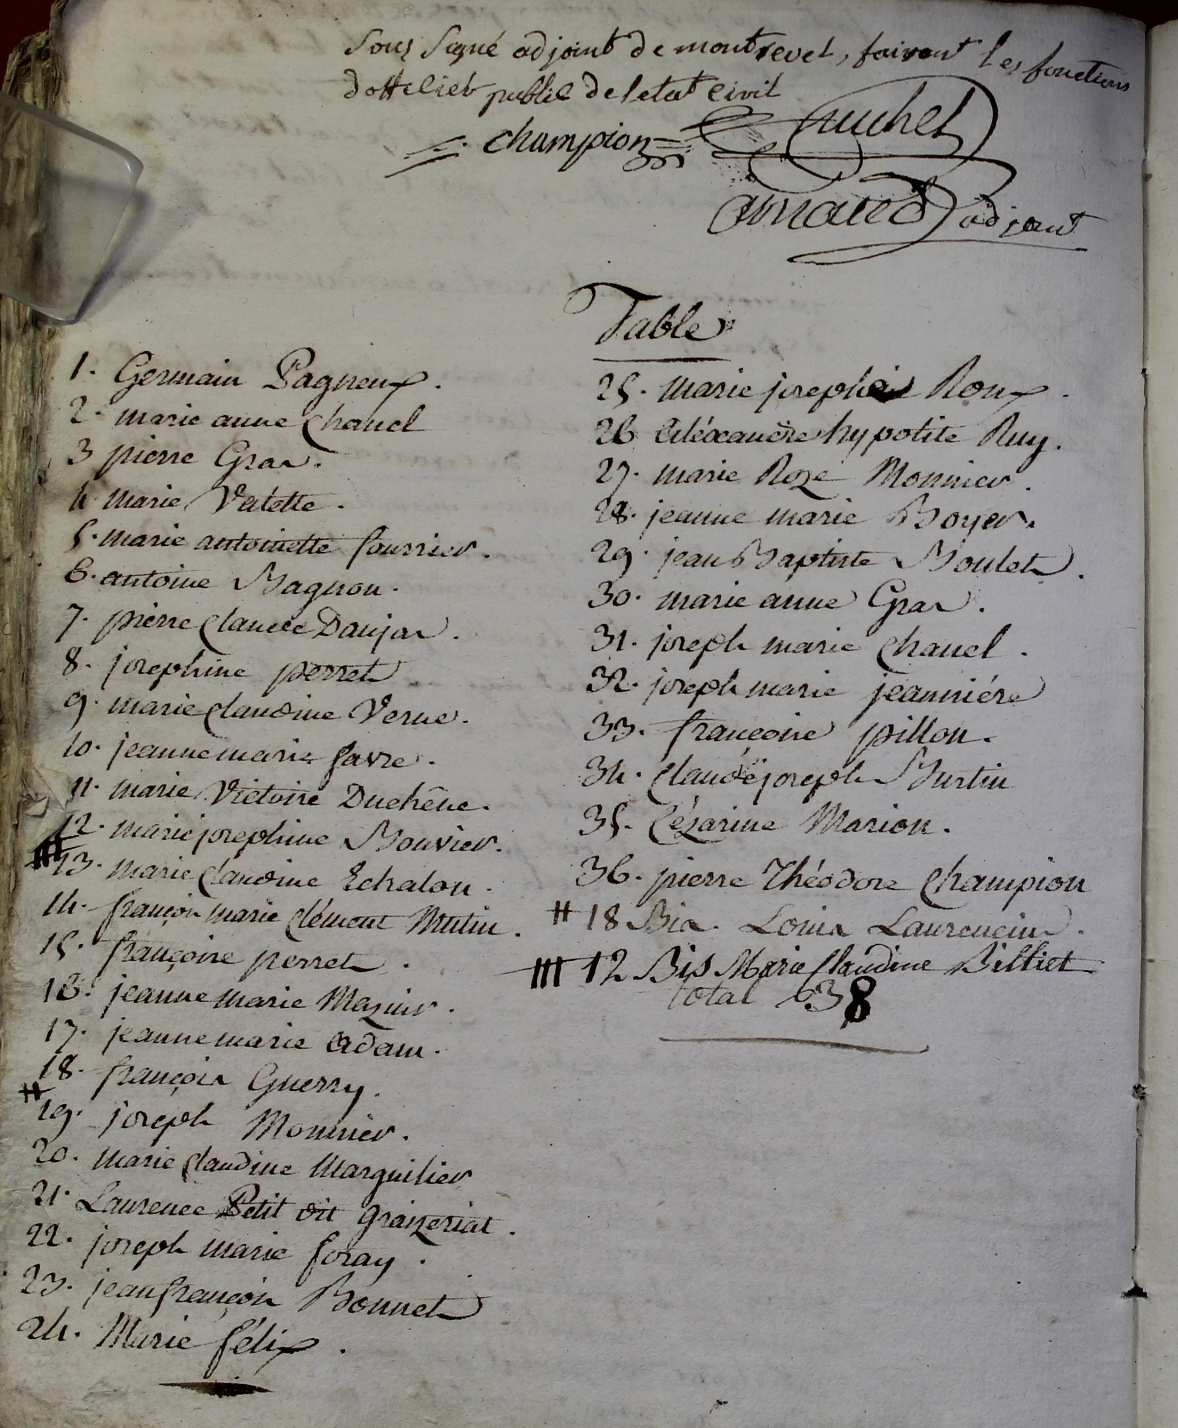 sous signé adjoint de montrevel, faisant les fonctions
d'officier public de letat civil
champion Cuchet
amared adjoint
Table
1. Germain Pagneux.
2. marie anne Chanel
3 pierre Gras.
4 marie Valette.
5. marie antoinette fourrier.
6. antoine Bagnon.
7. pierre Claude Daujas.
8. josephine perret
9. marie Claudine Verne.
10. jeanne marie favre.
11. marie Victoire Duchêne.
12. marie josephine Bouvier.
13. marie Claudine Echalon.
14. françois marie Clément Mutin.
15. françoise perret.
16. jeanne marie Mazuir.
17. jeanne marie Adam.
18. françois Guerry.
19. joseph Monnier.
20. marie Claudine Marguilier
21. Laurence Petit dit Graizeriat.
22. joseph marie foray.
23. jean françois Bonnet
24. Marie félix.
25. marie joseph Roux.
26 Aléxandre hypolite Ruy.
27. marie Roze Monnier.
28. jeanne marie Boyer.
29. jean Baptiste Boulet.
30. marie anne Gras.
31. joseph marie Chanel.
32. joseph marie jeanniére
33. françoise pillon.
34. Claude joseph Burtin
35. Cézarine Marion.
36. pierre Théodore Champion
# 18 Bis. Louis Laurencin.
12 Bis Marie Claudine Billiet
total 38